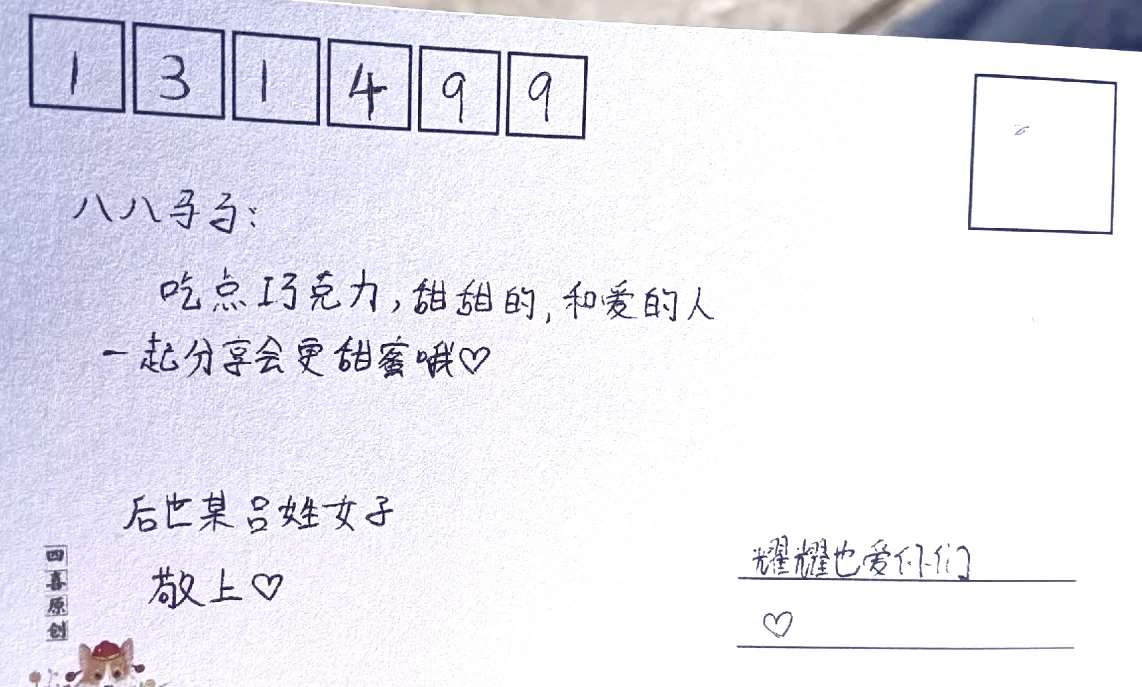 131499
八八弓弓:
吃点巧克力,甜甜的,和爱的人
一起分享会更甜蜜哦♡
后世某吕姓女子
敬上♡
耀耀也爱你们
♡
四喜原创